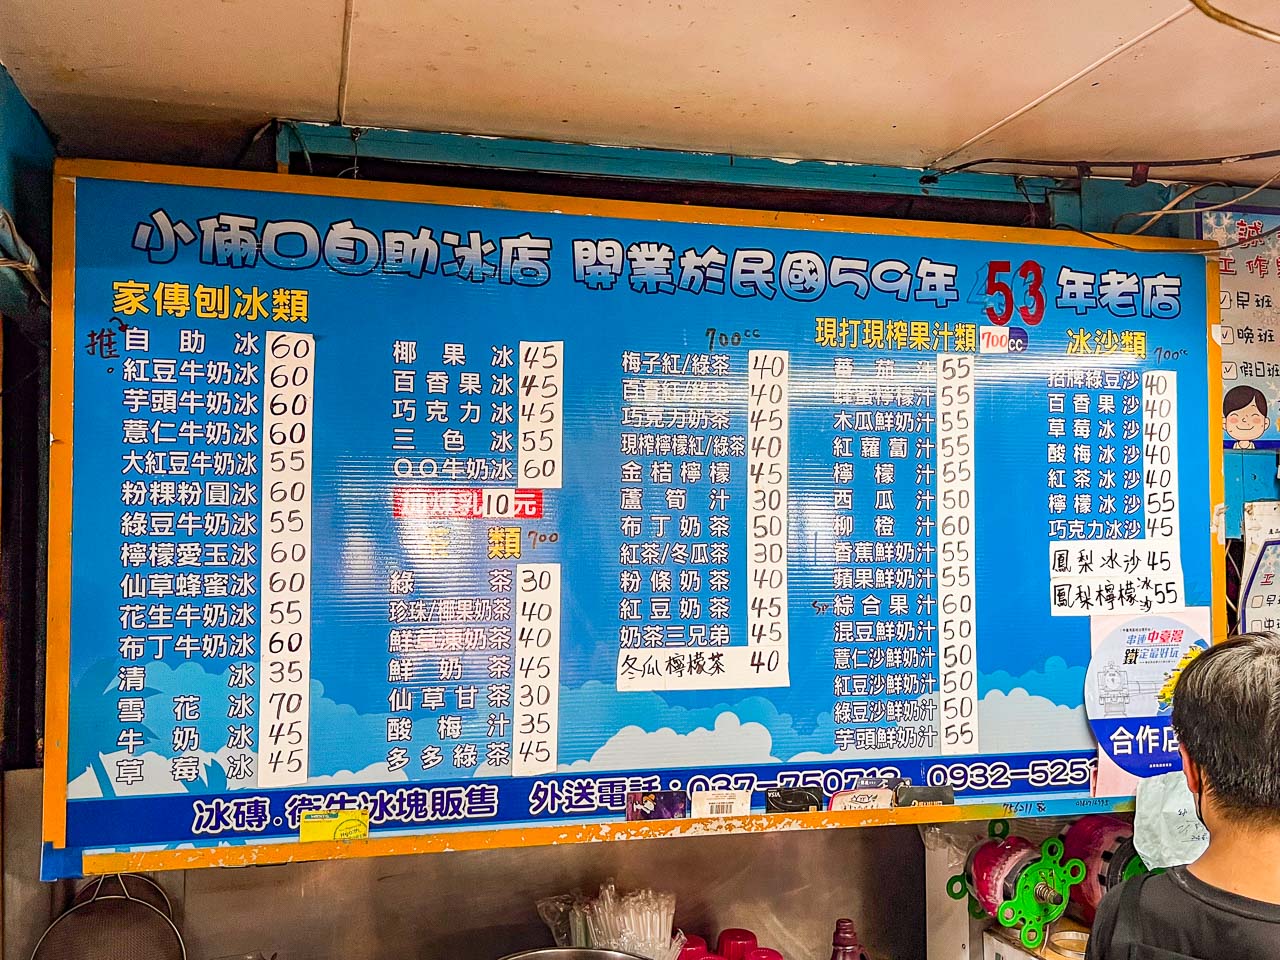 小倆口自助冰店 開業於民國59年 53年老店
家傳刨冰類
推
自助冰 60
紅豆牛奶冰 60
芋頭牛奶冰 60
薏仁牛奶冰 60
大紅豆牛奶冰 55
粉粿粉圓冰 60
綠豆牛奶冰 55
檸檬愛玉冰 60
仙草蜂蜜冰 60
花生牛奶冰 55
布丁牛奶冰 60
清冰 35
雪花冰 70
牛奶冰 45
草莓冰 45
椰果冰 45
百香果冰 45
巧克力冰 45
三色冰 55
QQ牛奶冰 60
加煉乳10元
類 700
綠茶 30
珍珠/椰果奶茶 40
鮮草凍奶茶 40
鮮奶茶 45
仙草甘茶 30
酸梅汁 35
多多綠茶 45
700cc
梅子紅/綠茶 40
百香紅/綠茶 40
巧克力奶茶 45
現榨檸檬紅/綠茶 40
金桔檸檬 45
蘆筍汁 30
布丁奶茶 50
紅茶/冬瓜茶 30
粉條奶茶 40
紅豆奶茶 45
奶茶三兄弟 45
冬瓜檸檬茶 40
現打現榨果汁類 700cc
蕃茄汁 55
蜂蜜檸檬汁 55
木瓜鮮奶汁 55
紅蘿蔔汁 55
檸檬汁 55
西瓜汁 50
柳橙汁 60
香蕉鮮奶汁 55
蘋果鮮奶汁 55
綜合果汁 60
混豆鮮奶汁 50
薏仁沙鮮奶汁 50
紅豆沙鮮奶汁 50
綠豆沙鮮奶汁 50
芋頭鮮奶汁 55
冰沙類 700cc
招牌綠豆沙 40
百香果沙 40
草莓冰沙 40
酸梅冰沙 40
紅茶冰沙 40
檸檬冰沙 55
巧克力冰沙 45
鳳梨冰沙 45
鳳梨檸檬冰沙 55
串連中臺灣
鐵定最好玩
合作店
冰磚.衛生冰塊販售 外送電話:037-750713 0932-5251
誠
工作
早班
晚班
假日班